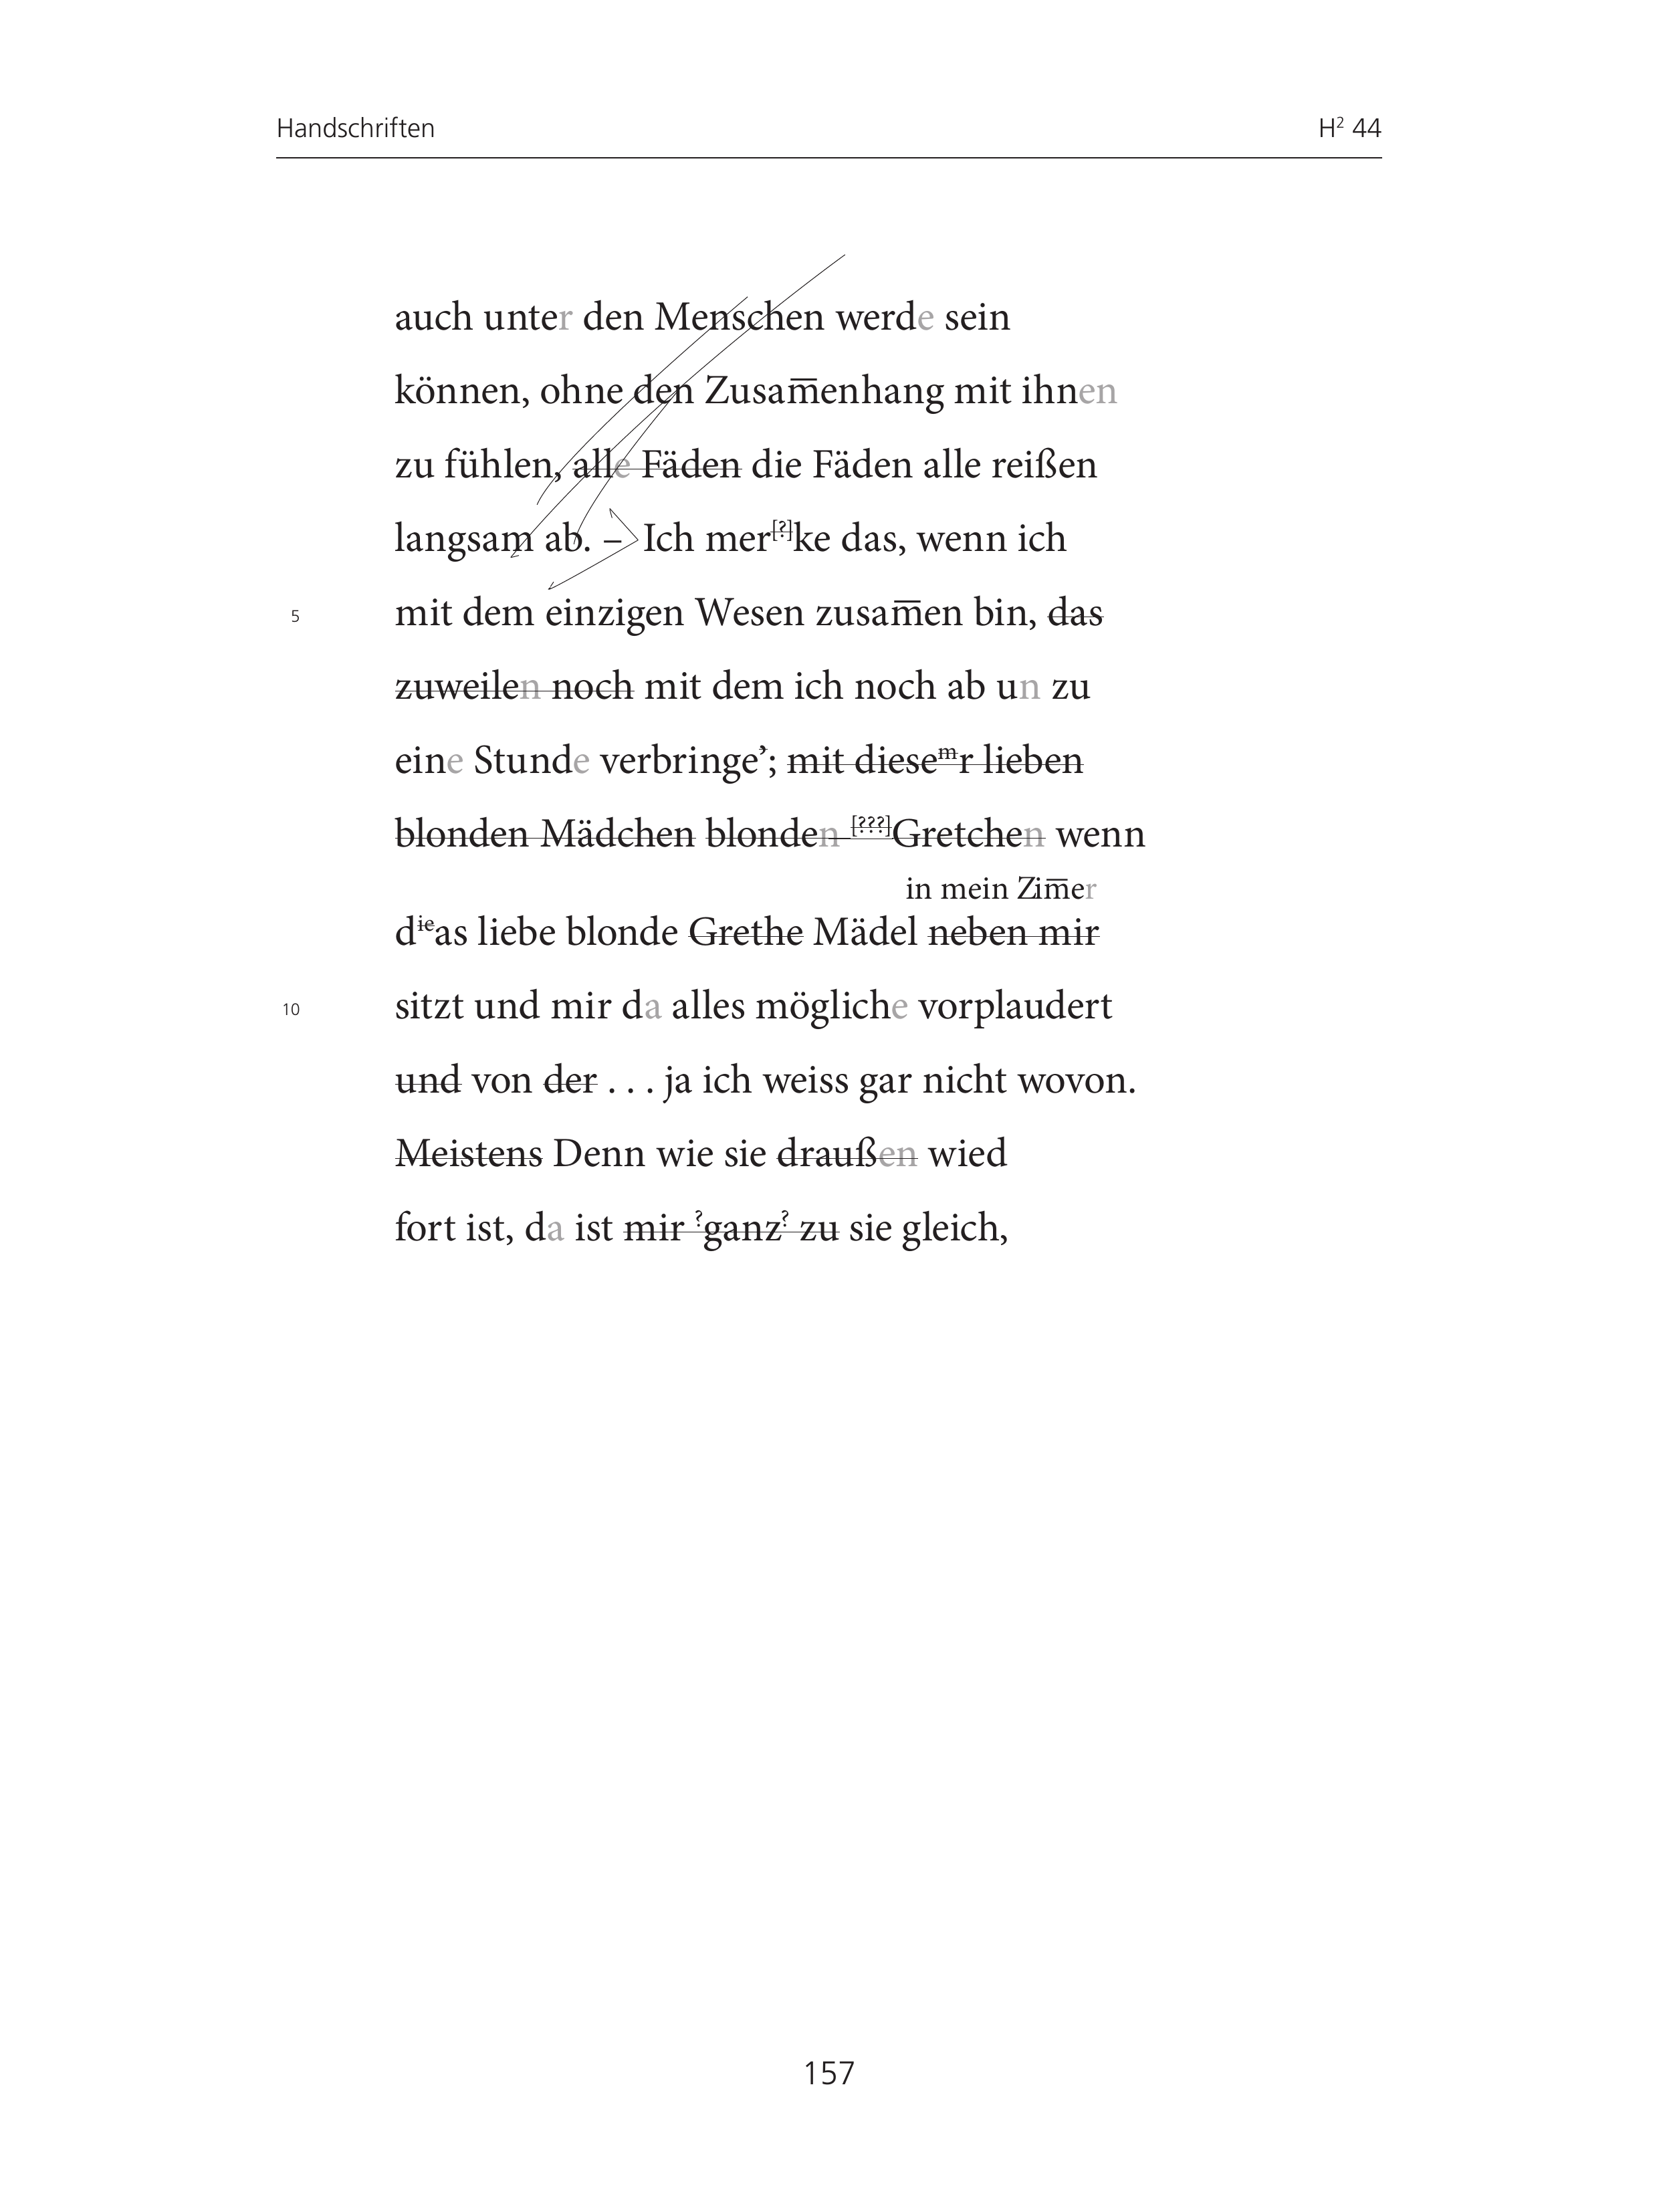 Handschriften H² 44
auch unter den Menschen werde sein
können, ohne den Zusam̅enhang mit ihnen
zu fühlen, alle Fäden die Fäden alle reißen
langsam ab. – Ich mer[?]ke das, wenn ich
5 mit dem einzigen Wesen zusam̅en bin, das
zuweilen noch mit dem ich noch ab un zu
eine Stunde verbringe’; mit diesemr lieben
blonden Mädchen blonden – [???]Gretchen wenn
in mein Zim̅er
dieas liebe blonde Grethe Mädel neben mir
10 sitzt und mir da alles mögliche vorplaudert
und von der . . . ja ich weiss gar nicht wovon.
Meistens Denn wie sie draußen wied
fort ist, da ist mir ?ganz? zu sie gleich,
157